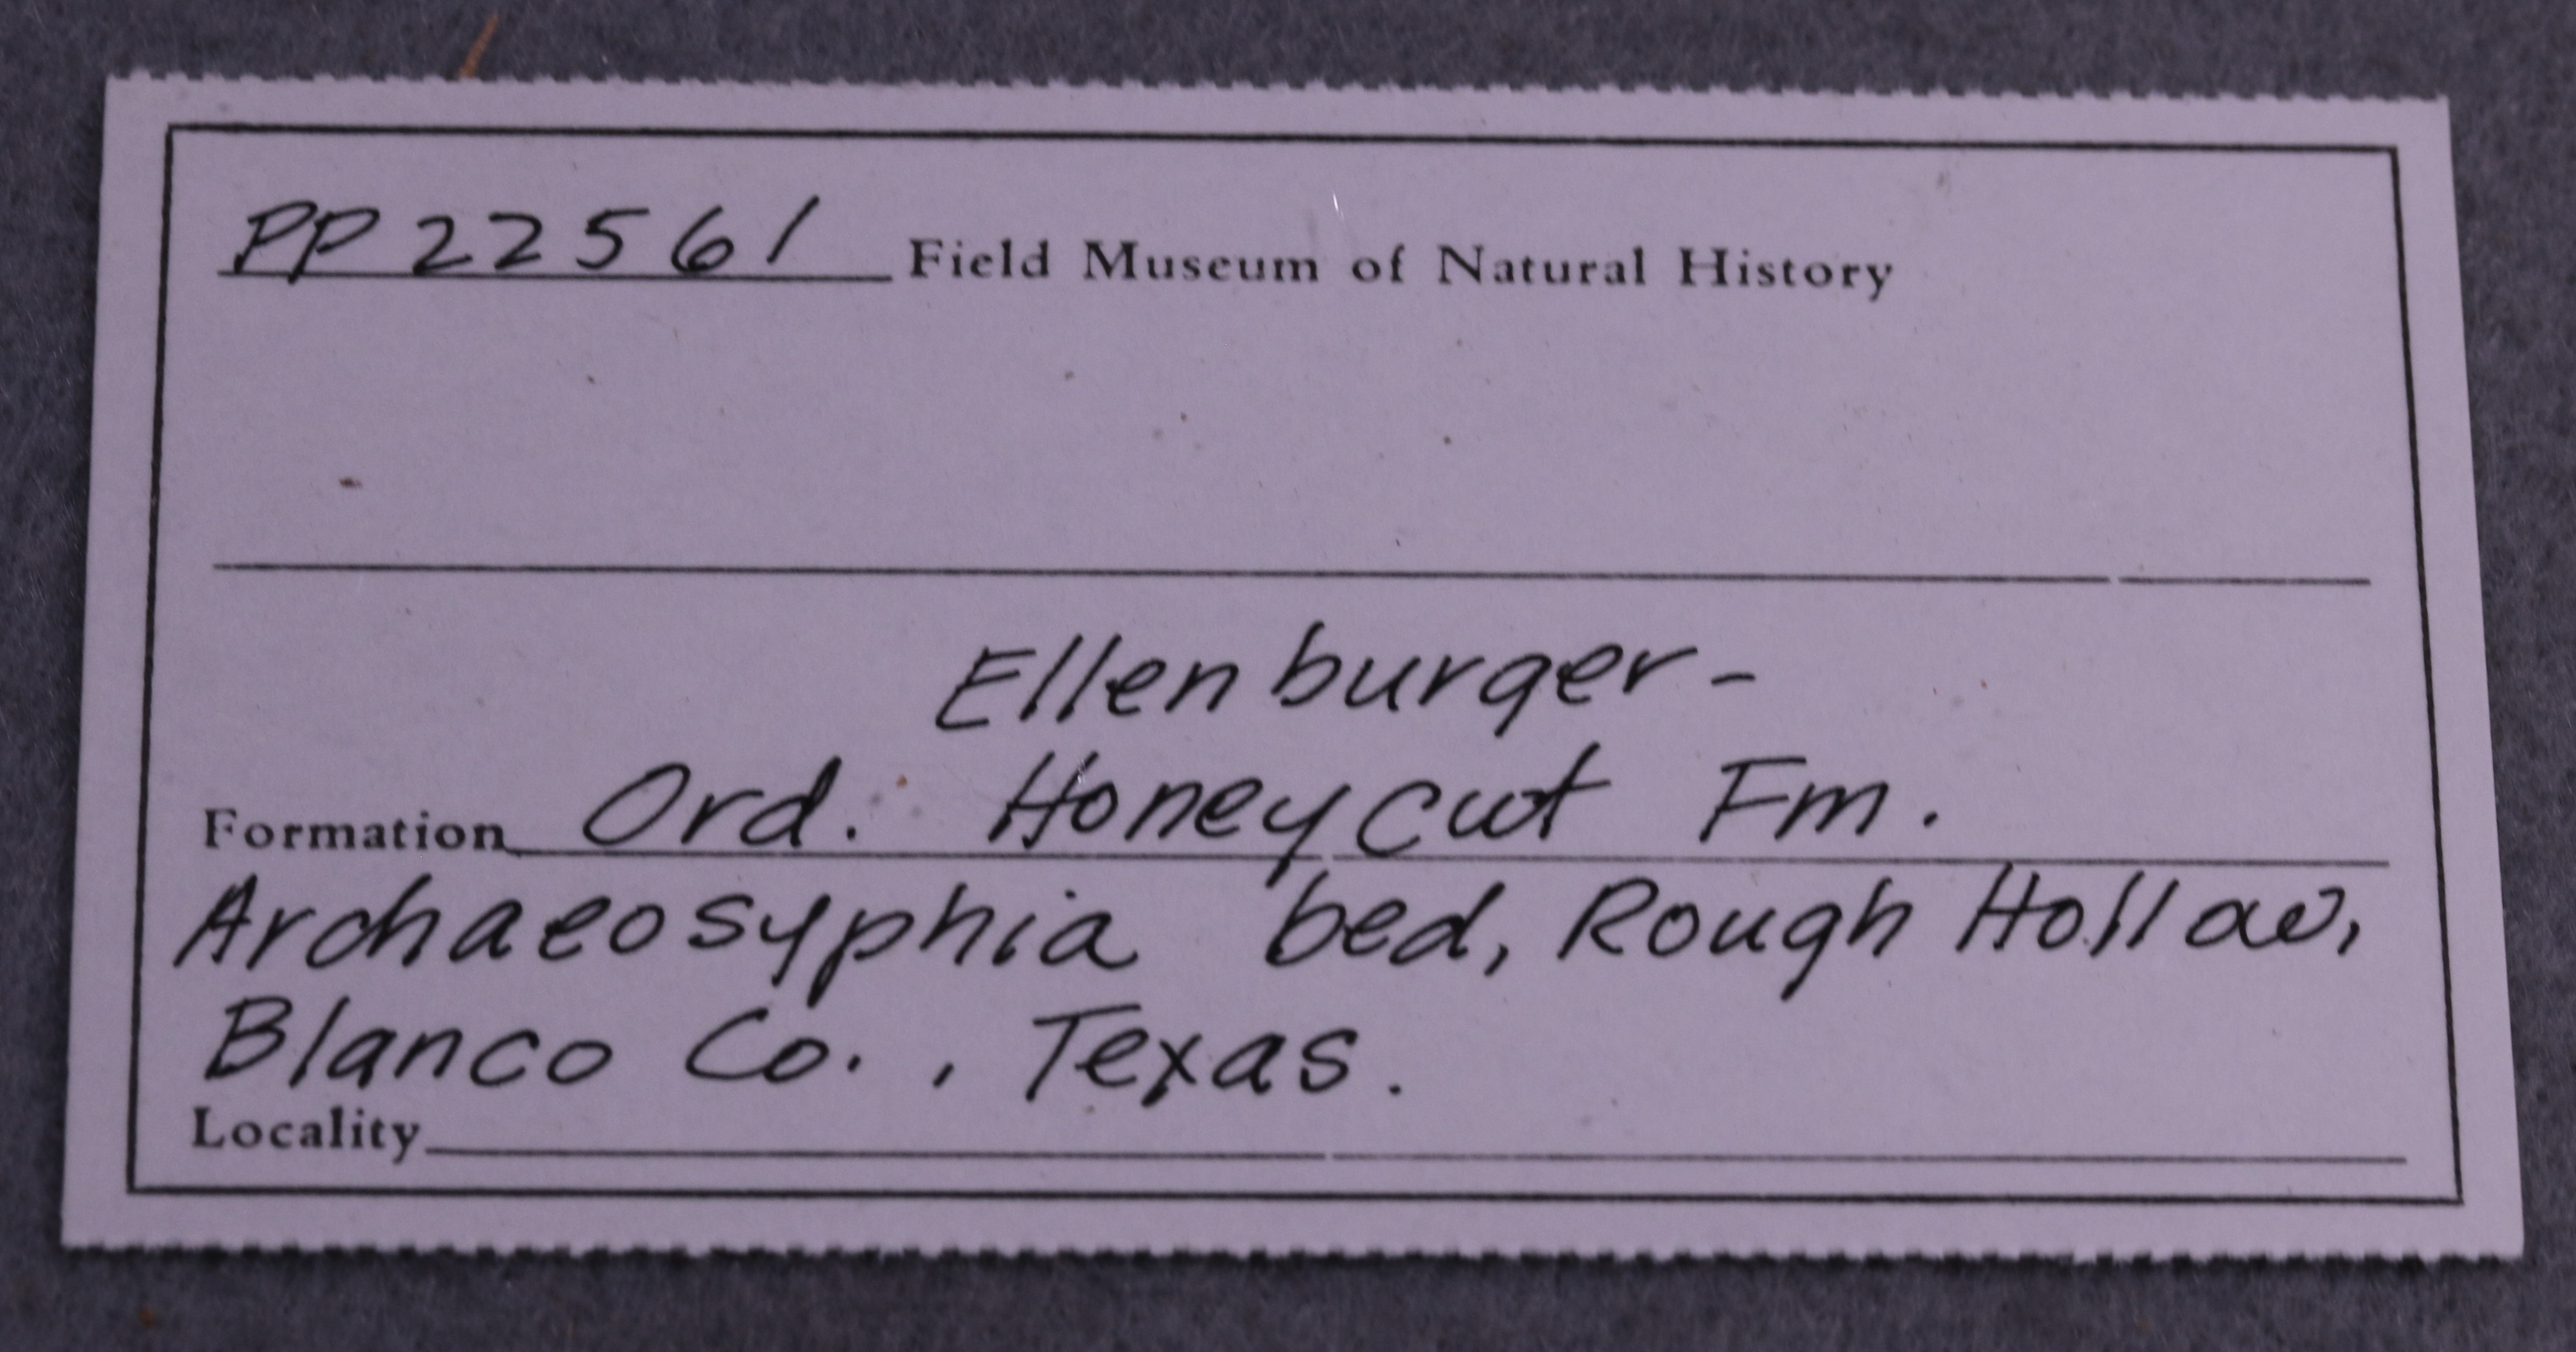 PP 22561 Field Museum of Natural History
Ellenburger-
Formation Ord. Honeycut Fm.
Archaeosyphia bed, Rough Hollow,
Blanco Co., Texas.
Locality